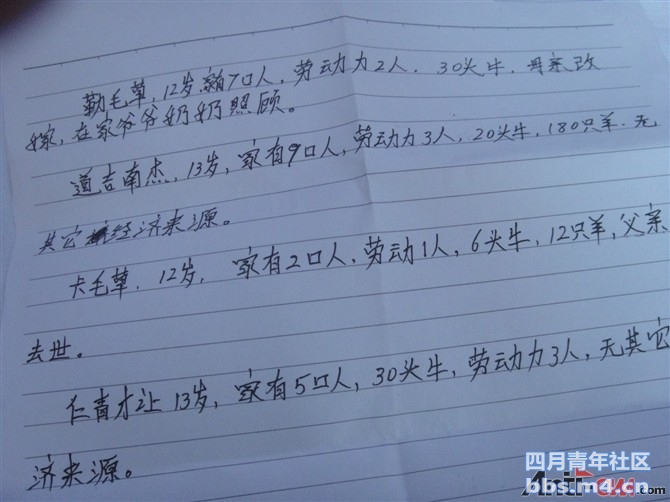 勤毛草，12岁，家有7口人，劳动力2人，30头牛，母亲改
嫁，在家爷爷奶奶照顾。
道吉南杰，13岁，家有9口人，劳动力3人，20头牛，180只羊.无
其它经济来源。
卡毛草，12岁，家有2口人，劳动1人，6头牛，12只羊，父亲
去世。
仁青才让 13岁，家有5口人，30头牛，劳动力3人，无其它
济来源。
四月青年社区
bbs.m4.cn